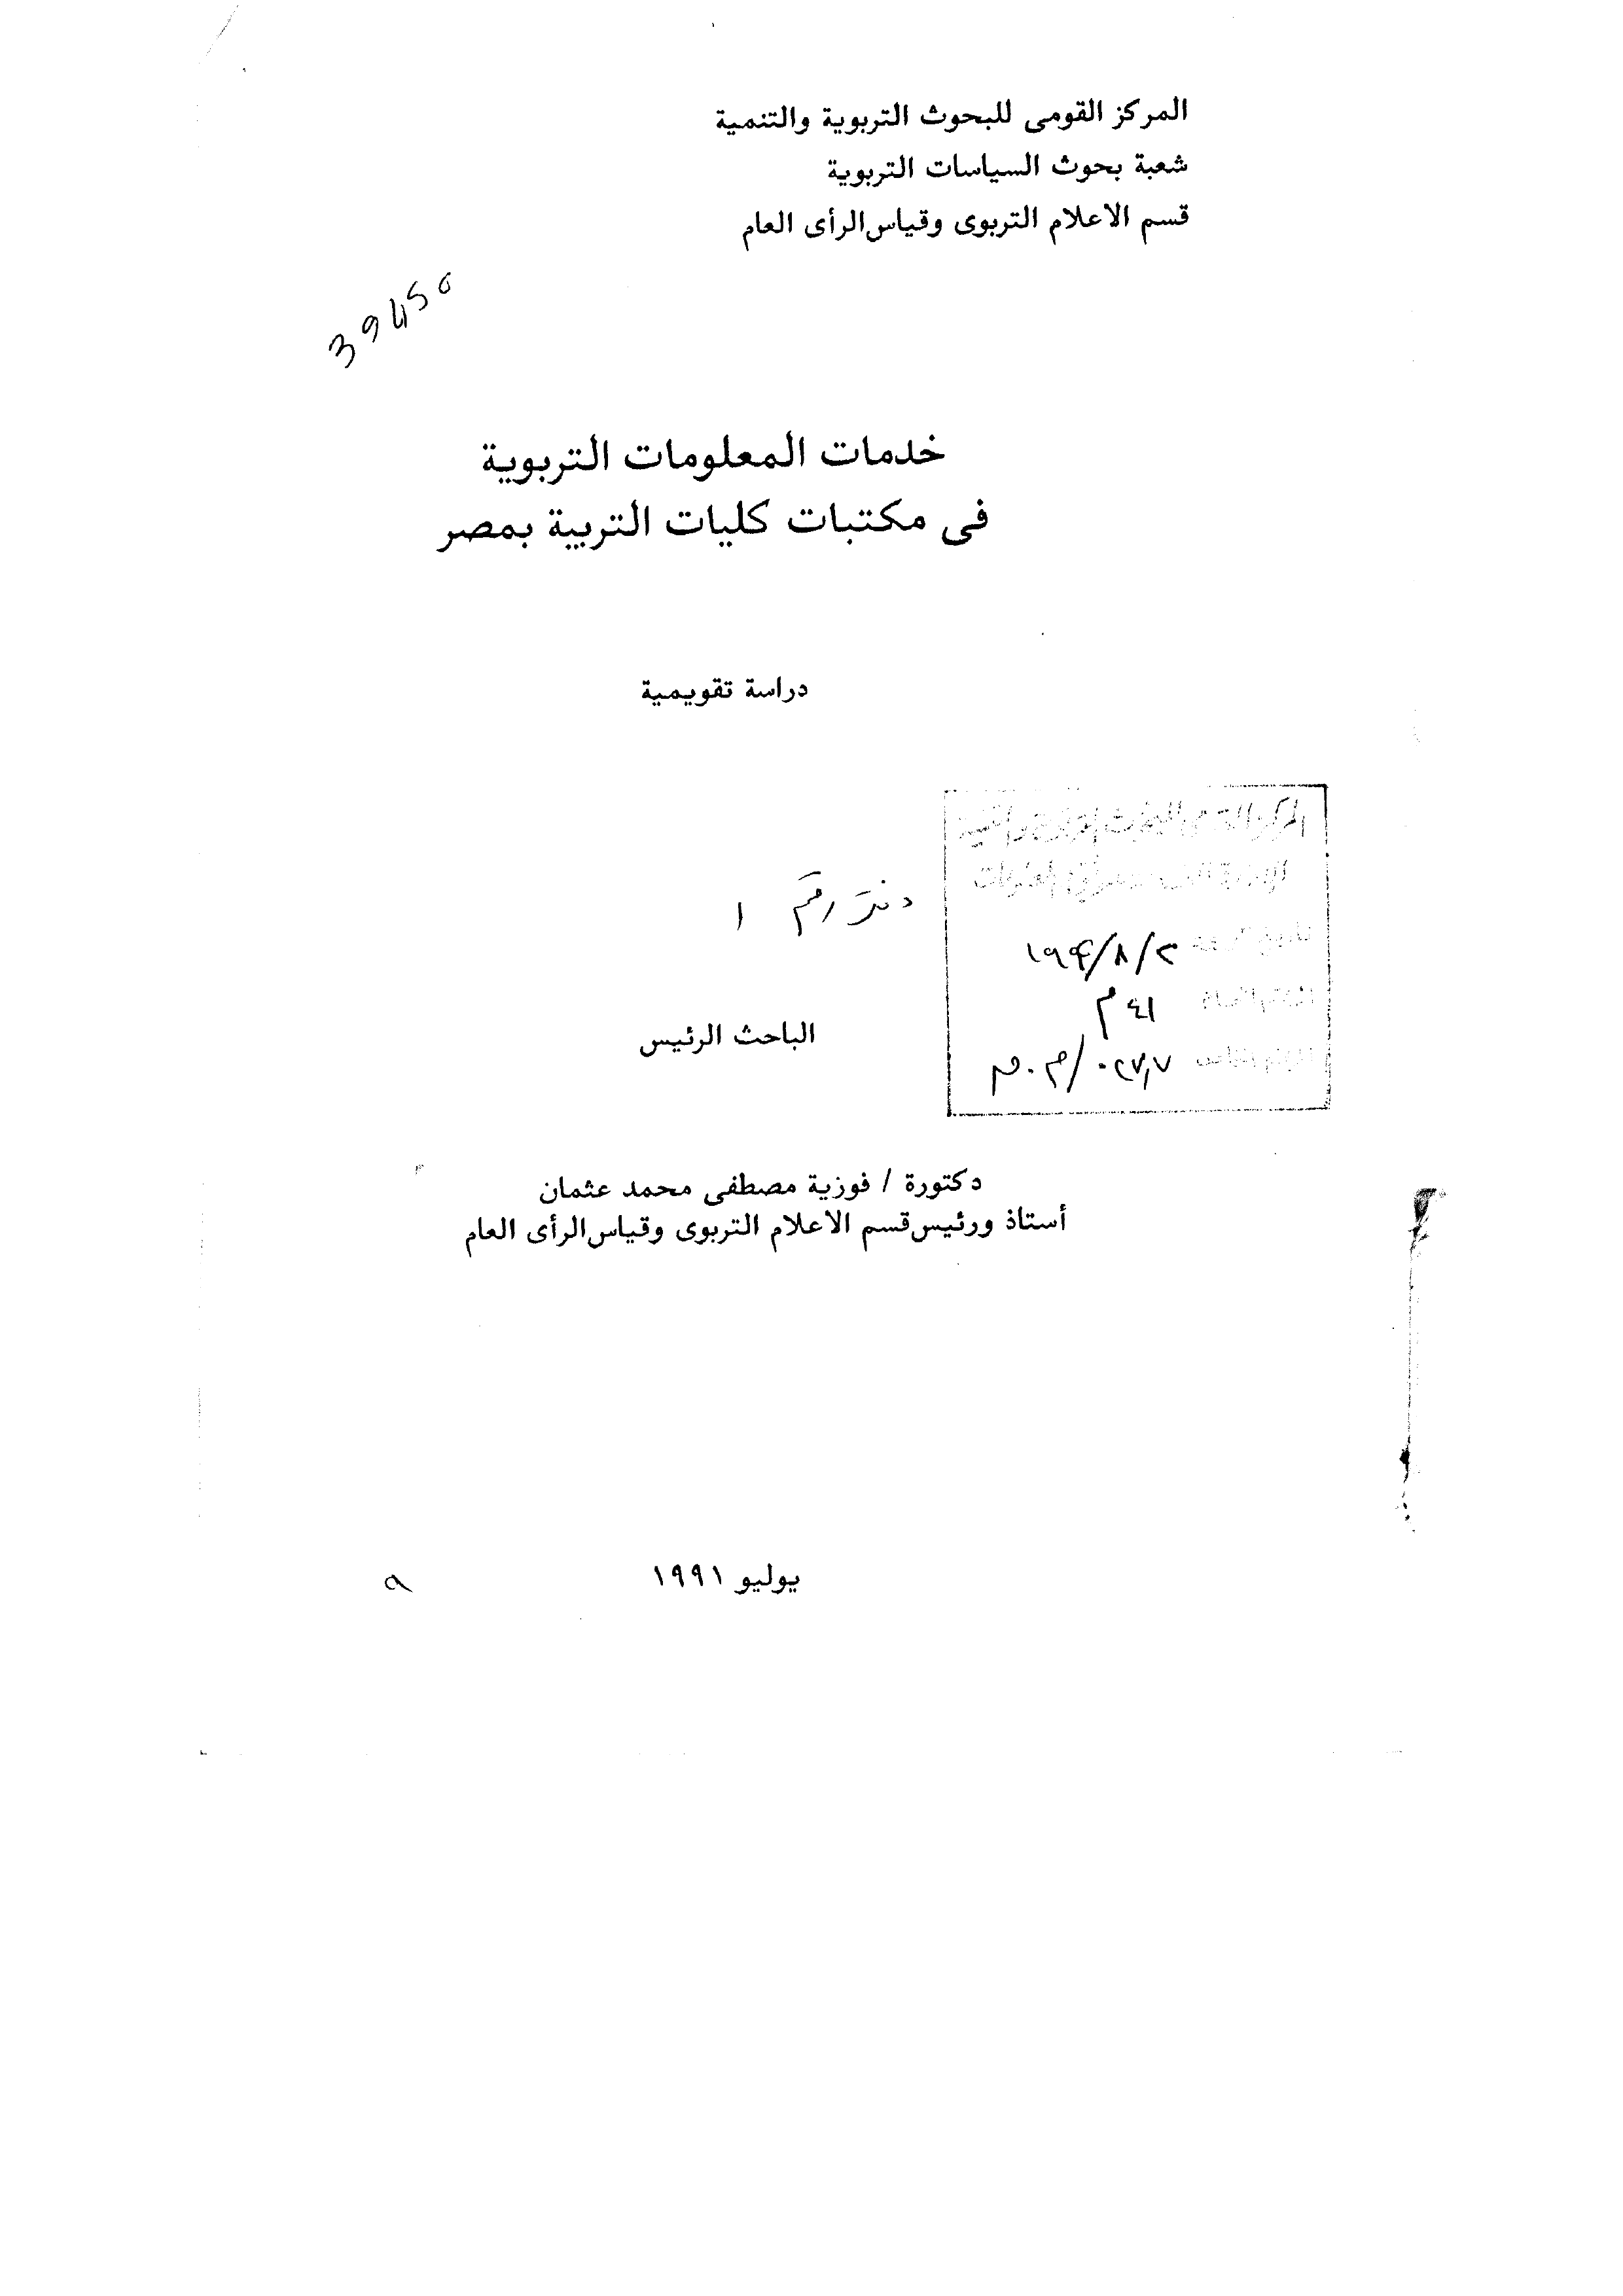 المركز القومى للبحوث التربوية والتنمية
شعبة بحوث السياسات التربوية
قسم الاعلام التربوى وقياس الرأى العام
خدمات المعلومات التربوية
فى مكتبات كليات التربية بمصر
دراسة تقويمية
دفتر رقم ١
٤١ م
الباحث الرئيس
دكتورة / فوزية مصطفى محمد عثمان
أستاذ ورئيس قسم الاعلام التربوى وقياس الرأى العام
يوليو ١٩٩١
٩